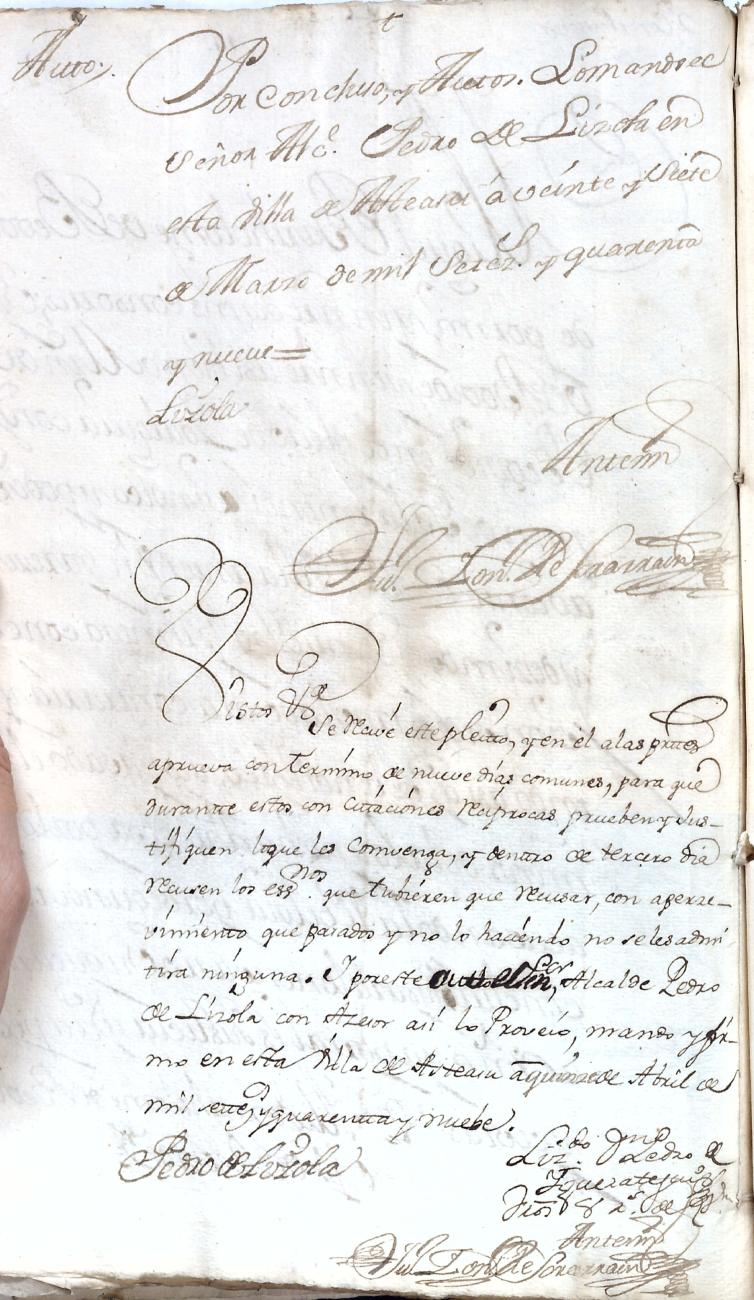 Auto.
Por concluso, y Autos. Lo mando el
señor Alc.e Pedro de Lizola en
esta Villa de Asteasu á veinte y siete
de Marzo de mil setez.s y quarenta
y nueve=
Lizola
Antemi
Ign. de Sorarrain
Visto &a
Se recive este pleito, y en el a las partes
aprueva con termino de nueve dias comunes, para que
durante estos con Citaciónes reciprocas prueben y Jus-
tifiquen loque les Comvenga, y dentro de tercero dia
recusen los essnos. que tubiéren que recusar, con aperze-
vimiento que pasados y no lo haciéndo no seles admi-
tira ninguna. I poreste Autto el Sr, Alcalde Pedro
de Lizola con Azesor asi lo Proveió, mando y fir-
mo en esta Villa de Asteasu a quinze de Abril de
mil settez.s y quarentta y nuebe.
Pedro de Lizola
Liz.do Dn Pedro de
Dros 8 rs. de
Antemi
Ign. de Sorarrain